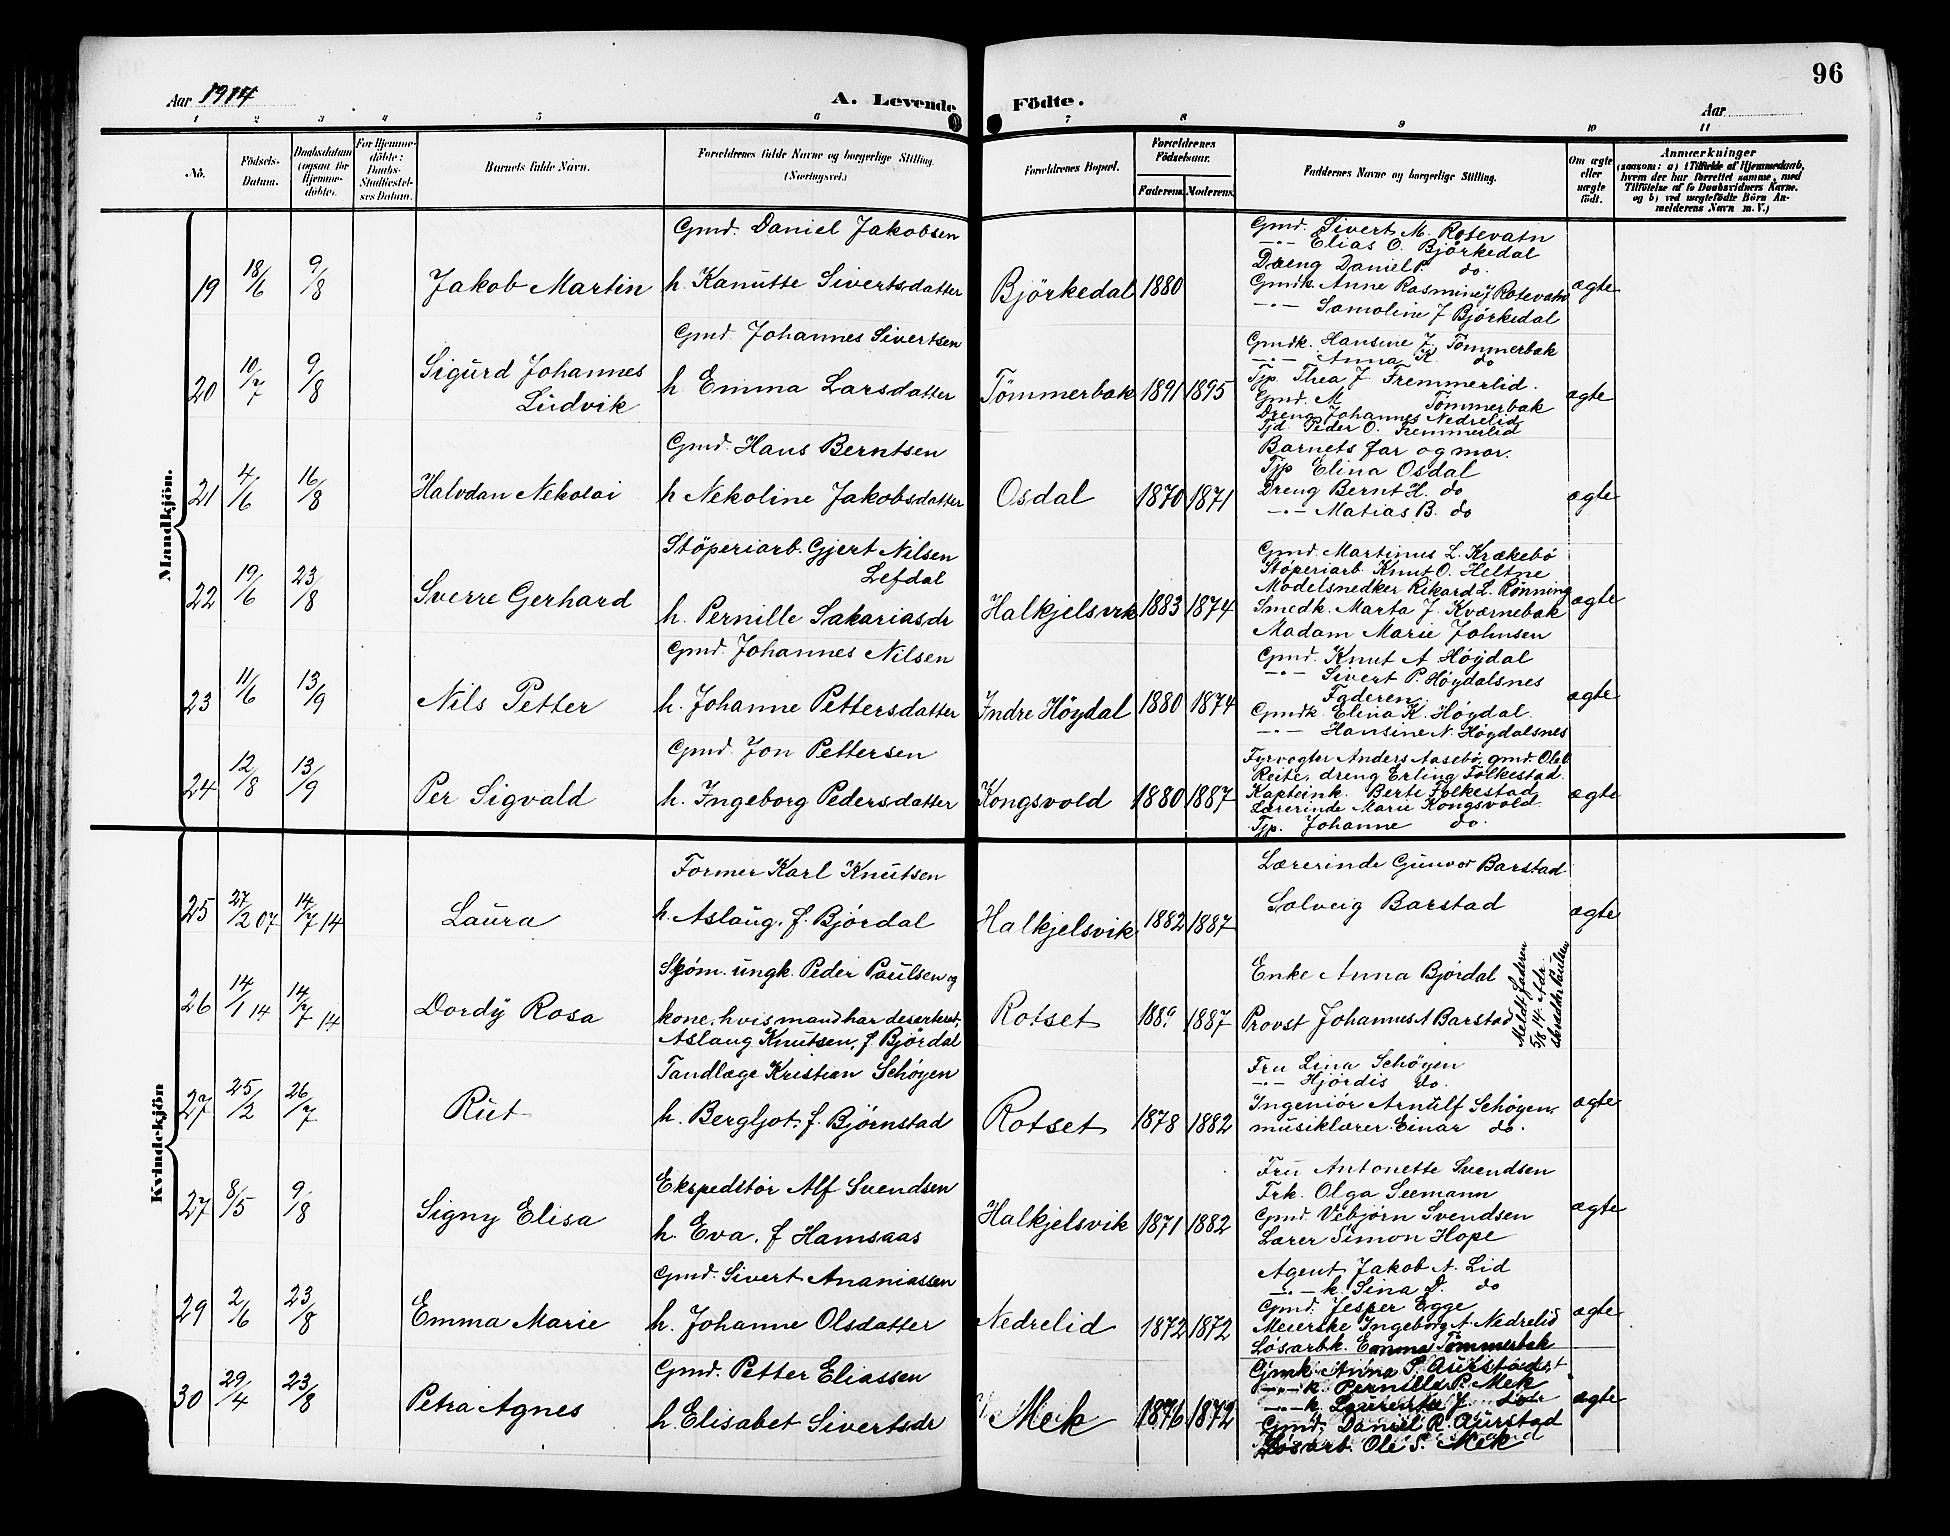 96
Aar 1914
A. Levende Fødte.
Aar
1 2 3 4 5 6 7 8 9 10 11
No.
Fødsels-Datum.
Daabsdatum (ogsaa for Hjemmedøbte.
For Hjemmedøbte: Daabs-Stadfæstelses Datum.
Barnets fulde Navn.
Forældrenes fulde Navne og borgerlige Stilling. (Næringsvei.)
Forældrenes Bopæl.
Forældrenes Fødselsaar.
Faderens. Moderens.
Faddernes Navne og borgerlige Stilling.
Om ægte eller uægte født.
Anmærkninger
(saasom: a) i Tilfælde af Hjemmedaab, hvem der har forrettet samme, med Tilføielse af to Daabsvidners Navne. og b) ved uægtefødte Børn Anmelderens Navn m. V.)
Mandkjøn.
19 18/6 9/8 Jakob Martin
Gmd. Daniel Jakobsen
h. Kanutte Sivertsdatter
Björkedal 1880
Gmd. Sivert M. Rotevatn
-"- Elias O. Björkedal
Dreng Daniel P. do.
Gmdk. Anne Rasmine J Rotevatn
-"- Samoline J Björkedal
ægte
20 10/7 9/8 Sigurd Johannes
Ludvik
Gmd. Johannes Sivertsen
h Emma Larsdatter
Tömmerbak 1891 1895
Gmdk. Hansine J. Tömmerbak
-"- Anna K. do
Tjp. Thea J. Fremmerlid.
Gmd. M Tömmerbak
Dreng Johannes Nedrelid
Tjd. Peder O. Fremmerlid
ægte
21 4/6 16/8 Halvdan Nekolai
Gmd. Hans Berntsen
h Nekoline Jakobsdatter
Osdal 1870 1871
Barnets far og mor.
Tjp Elina Osdal
Dreng Bernt H. do
-"- Matias B. do
ægte
22 19/6 23/8 Sverre Gerhard
Stöperiarb. Gjert Nilsen
Lefdal
h. Pernille Sakariasdr
Halkjelsvik 1883 1874
Gmd. Martinus L. Krækebö
Stöperiarb. Knut O. Heltne
Modelsnedker Rikard L. Rönning
Smedk. Marta J. Kværnebak
Madam Marie Johnsen
ægte
23 11/6 13/9 Nils Petter
Gmd. Johannes Nilsen
h. Johanne Pettersdatter
Indre Höydal 1880 1874
Gmd. Knut A Höydal
-"- Sivert P. Höydalsnes
Faderen
Gmdk. Elina K. Höydal.
-"- Hansine N. Höydalsnes
ægte
24 12/8 13/9 Per Sigvald
Gmd. Jon Pettersen
h. Ingeborg Pedersdatter
Kongsvold 1880 1887
Fyrvogter Anders Aasebö, gmd. Ole O
Reite, dreng Erling Folkestad.
Kapteink. Berte Folkestad
Lærerinde Marie Kongsvold.
Tjp. Johanne do.
ægte
Kvindekjön
25 27/2 07 14/7 14 Laura
Former Karl Knutsen
h. Aslaug, f. Bjórdal
Halkjelsvik 1882 1887
Lærerinde Gunvor Barstad
Solveig Barstad
ægte
26 14/1 14 14/7 14 Dordy Rosa
Sjöm. ungk. Peder Paulsen og
kone, hvis mand har deserteret,
Aslaug Knutsen, f. Bjórdal
Rotset 1889 1887
Enke Anna Bjórdal
Provst Johannes A Barstad
Meldt faderen
5/8 14.
27 25/2 26/7 Rut
Tandlæge Kristian Schöyen
h. Bergljot, f. Björnstad
Rotset 1878 1882
Fru Lina Schöyen
-"- Hjördis do.
Ingeniör Arnulf Schöyen,
musiklærer Einar do.
ægte
27 8/5 9/8 Signy Elisa
Ekspeditör Alf Svendsen
h. Eva, f Hamsaas
Halkjelsvik 1871 1882
Fru Antonette Svendsen
Frk. Olga Seemann
Gmd. Vebjörn Svendsen
Lærer Simon Hope
ægte
29 2/6 23/8 Emma Marie
Gmd. Sivert Ananiassen
h. Johanne Olsdatter
Nedrelid 1872 1872
Agent Jakob A. Lid
-"- k. Sina D. do
Gmd. Jesper Egge
Meierske Ingeborg A. Nedrelid
Lösarbk. Emma Tömmerbak
ægte
30 29/4 23/8 Petra Agnes
Gmd. Petter Eliassen
h. Elisabet Sivertsdr
Mek 1876 1872
Gmk. Anna S. Aurstad
-"- k. Pernille P. Mek
-"- k. Laurentse J.
Gmd. Daniel R. Aurstad
Lösarb. Ole S. Mek
ægte